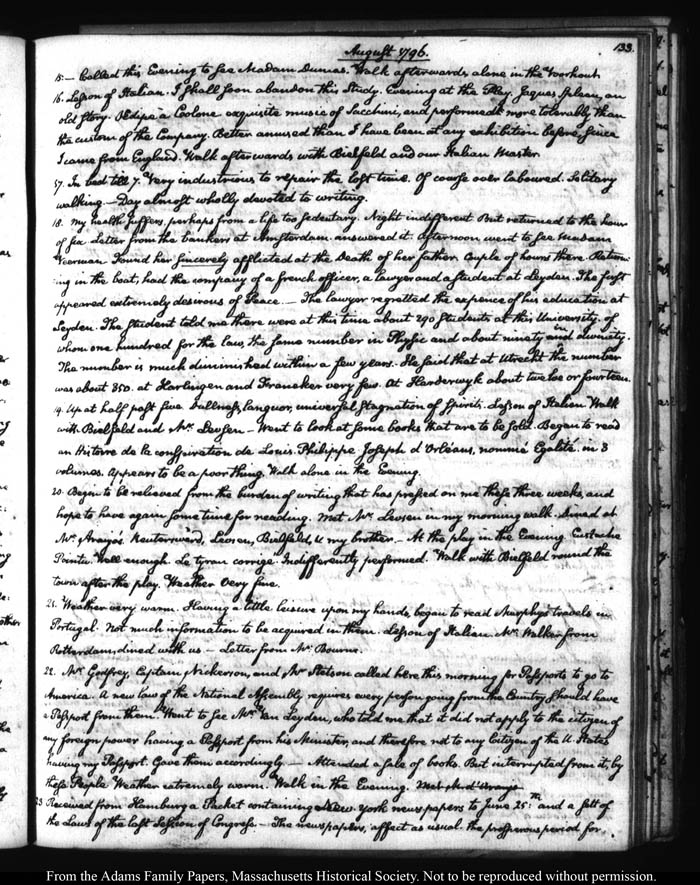 August 1796.
133.
15. — Called this Evening to see Madam Dumas. Walk afterwards alone in the Voorhout.
16. Lesson of Italian. I shall soon abandon this Study. Evening at the Play. Jaques Spleen, an
old story. Oedipe à Colone exquisite music of Sacchini, and performed more tolerably than
the custom of the Company. Better amused than I have been at any exhibition before, since
I came from England. Walk afterwards with Bielfeld and our Italian Master.
17. In bed till 7. Very industrious to repair the lost time. Of course over laboured. Solitary
walking. — Day almost wholly devoted to writing.
18. My health suffers, perhaps from a life too sedentary. Night indifferent But returned to the hour
of six. Letter from the bankers at Amsterdam. answered it. Afternoon went to see Madam
Veerman. Found her sincerely afflicted at the Death of her father. Couple of hours there. Return-
ing in the boat, had the company of a french officer, a lawyer and a student at Leyden. The first
appeared extremely desirous of Peace. — The lawyer regretted the expence of his education at
Leyden. The student told me there were at this time about 290 students at this University. of
whom one hundred for the law, the same number in Physic and about ninety in divinity.
The number is much diminished within a few years. He said that at Utrecht the number
was about 350. at Harlingen and Franeker very few. At Harderwyk about twelve or fourteen.
19. Up at half past five. Dullness, languor, universal stagnation of Spirits. Lesson of Italian. Walk
with Bielfeld and Mr. Levsen — Went to look at some books that are to be sold. Began to read
an Histoire de la conspiration de Louis Philippe Joseph d'Orléans, nommé Egalité. in 3
volumes. Appears to be a poor thing. Walk alone in the Evening.
20. Begin to be relieved from the burden of writing that has pressed on me these three weeks, and
hope to have again some time for reading. Met Mr. Levsen in my morning walk. Dined at
Mr. Araujo's. Reuterswärd, Levsen, Bielfeld, & my brother. — At the play in the Evening. Eustache
Pointu. Well enough. Le tyran corrigé. Indifferently performed. Walk with Bielfeld round the
town after the play. Weather very fine.
21. Weather very warm. Having a little leisure upon my hands, began to read Murphy's travels in
Portugal. Not much information to be acquired in them. Lesson of Italian. Mr. Walker from
Rotterdam, dined with us. — Letter from Mr. Bourne.
22. Mr. Godfrey, Captain Nickerson, and Mr. Stetson called here this morning for Passports to go to
America. A new law of the National Assembly requires every person going from the Country should have
a Passport from them. Went to see Mr. Van Leyden, who told me that it did not apply to the citizen of
any foreign power having a Passport from his Minister, and therefore not to any Citizen of the U. States
having my Passport. Gave them accordingly. — Attended a sale of books. But interrupted from it, by
these People. Weather extremely warm. Walk in the Evening. Met M. d'Araujo
23 Received from Hamburg a Packet containing New York newspapers to June 25th. and a sett of
the Laws of the last Session of Congress. — The newspapers, affect as usual. the prosperous period for
From the Adams Family Papers, Massachusetts Historical Society. Not to be reproduced without permission.